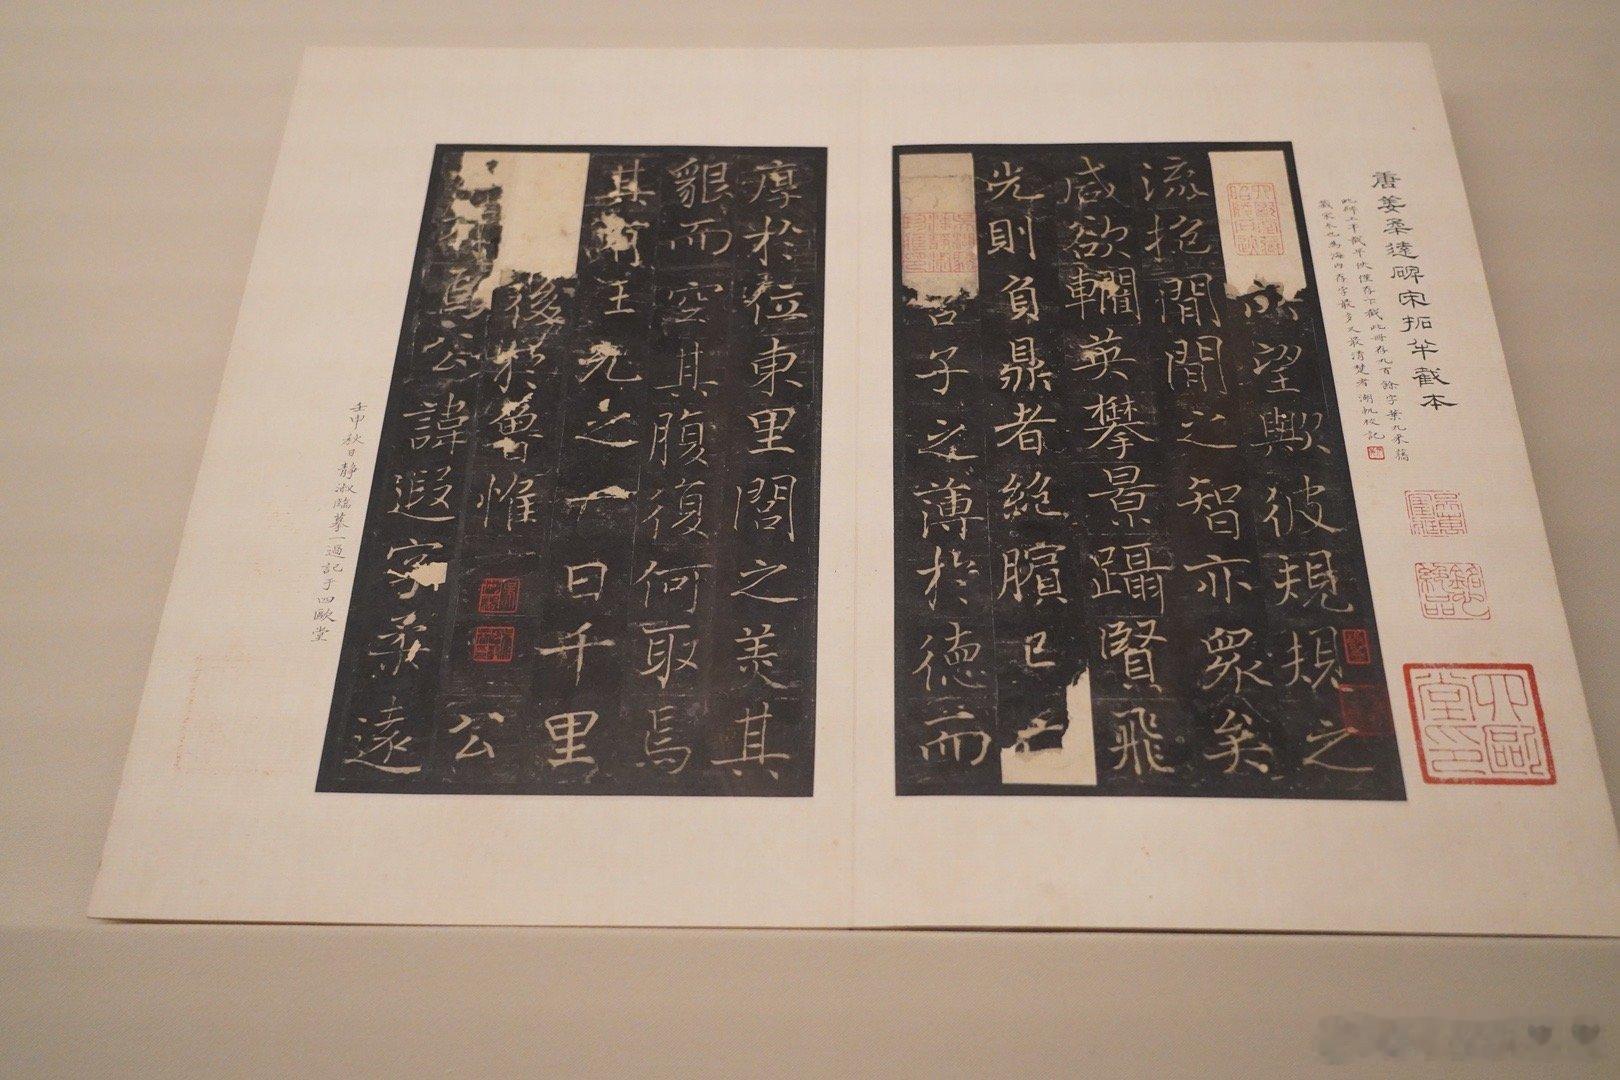 唐姜柔遠碑宋拓半截本
此碑上半截早佚僅存下截此冊存九百餘字葉九來舊
藏宋本也為海內存字最多又最清楚者湖帆校記
四歐堂印
望輿彼規規之
流挹閒閒之智亦眾矣
感欲轥英攀景躡賢飛
光則負鼎者絕臏已亡
君子之薄於德而
厚於位東里閭之美其
貌而空其腹復何取焉
其前王允之一日千里
後於魯惟公
焉公諱遐字柔遠
壬申秋日靜淑臨摹一過記于四歐堂